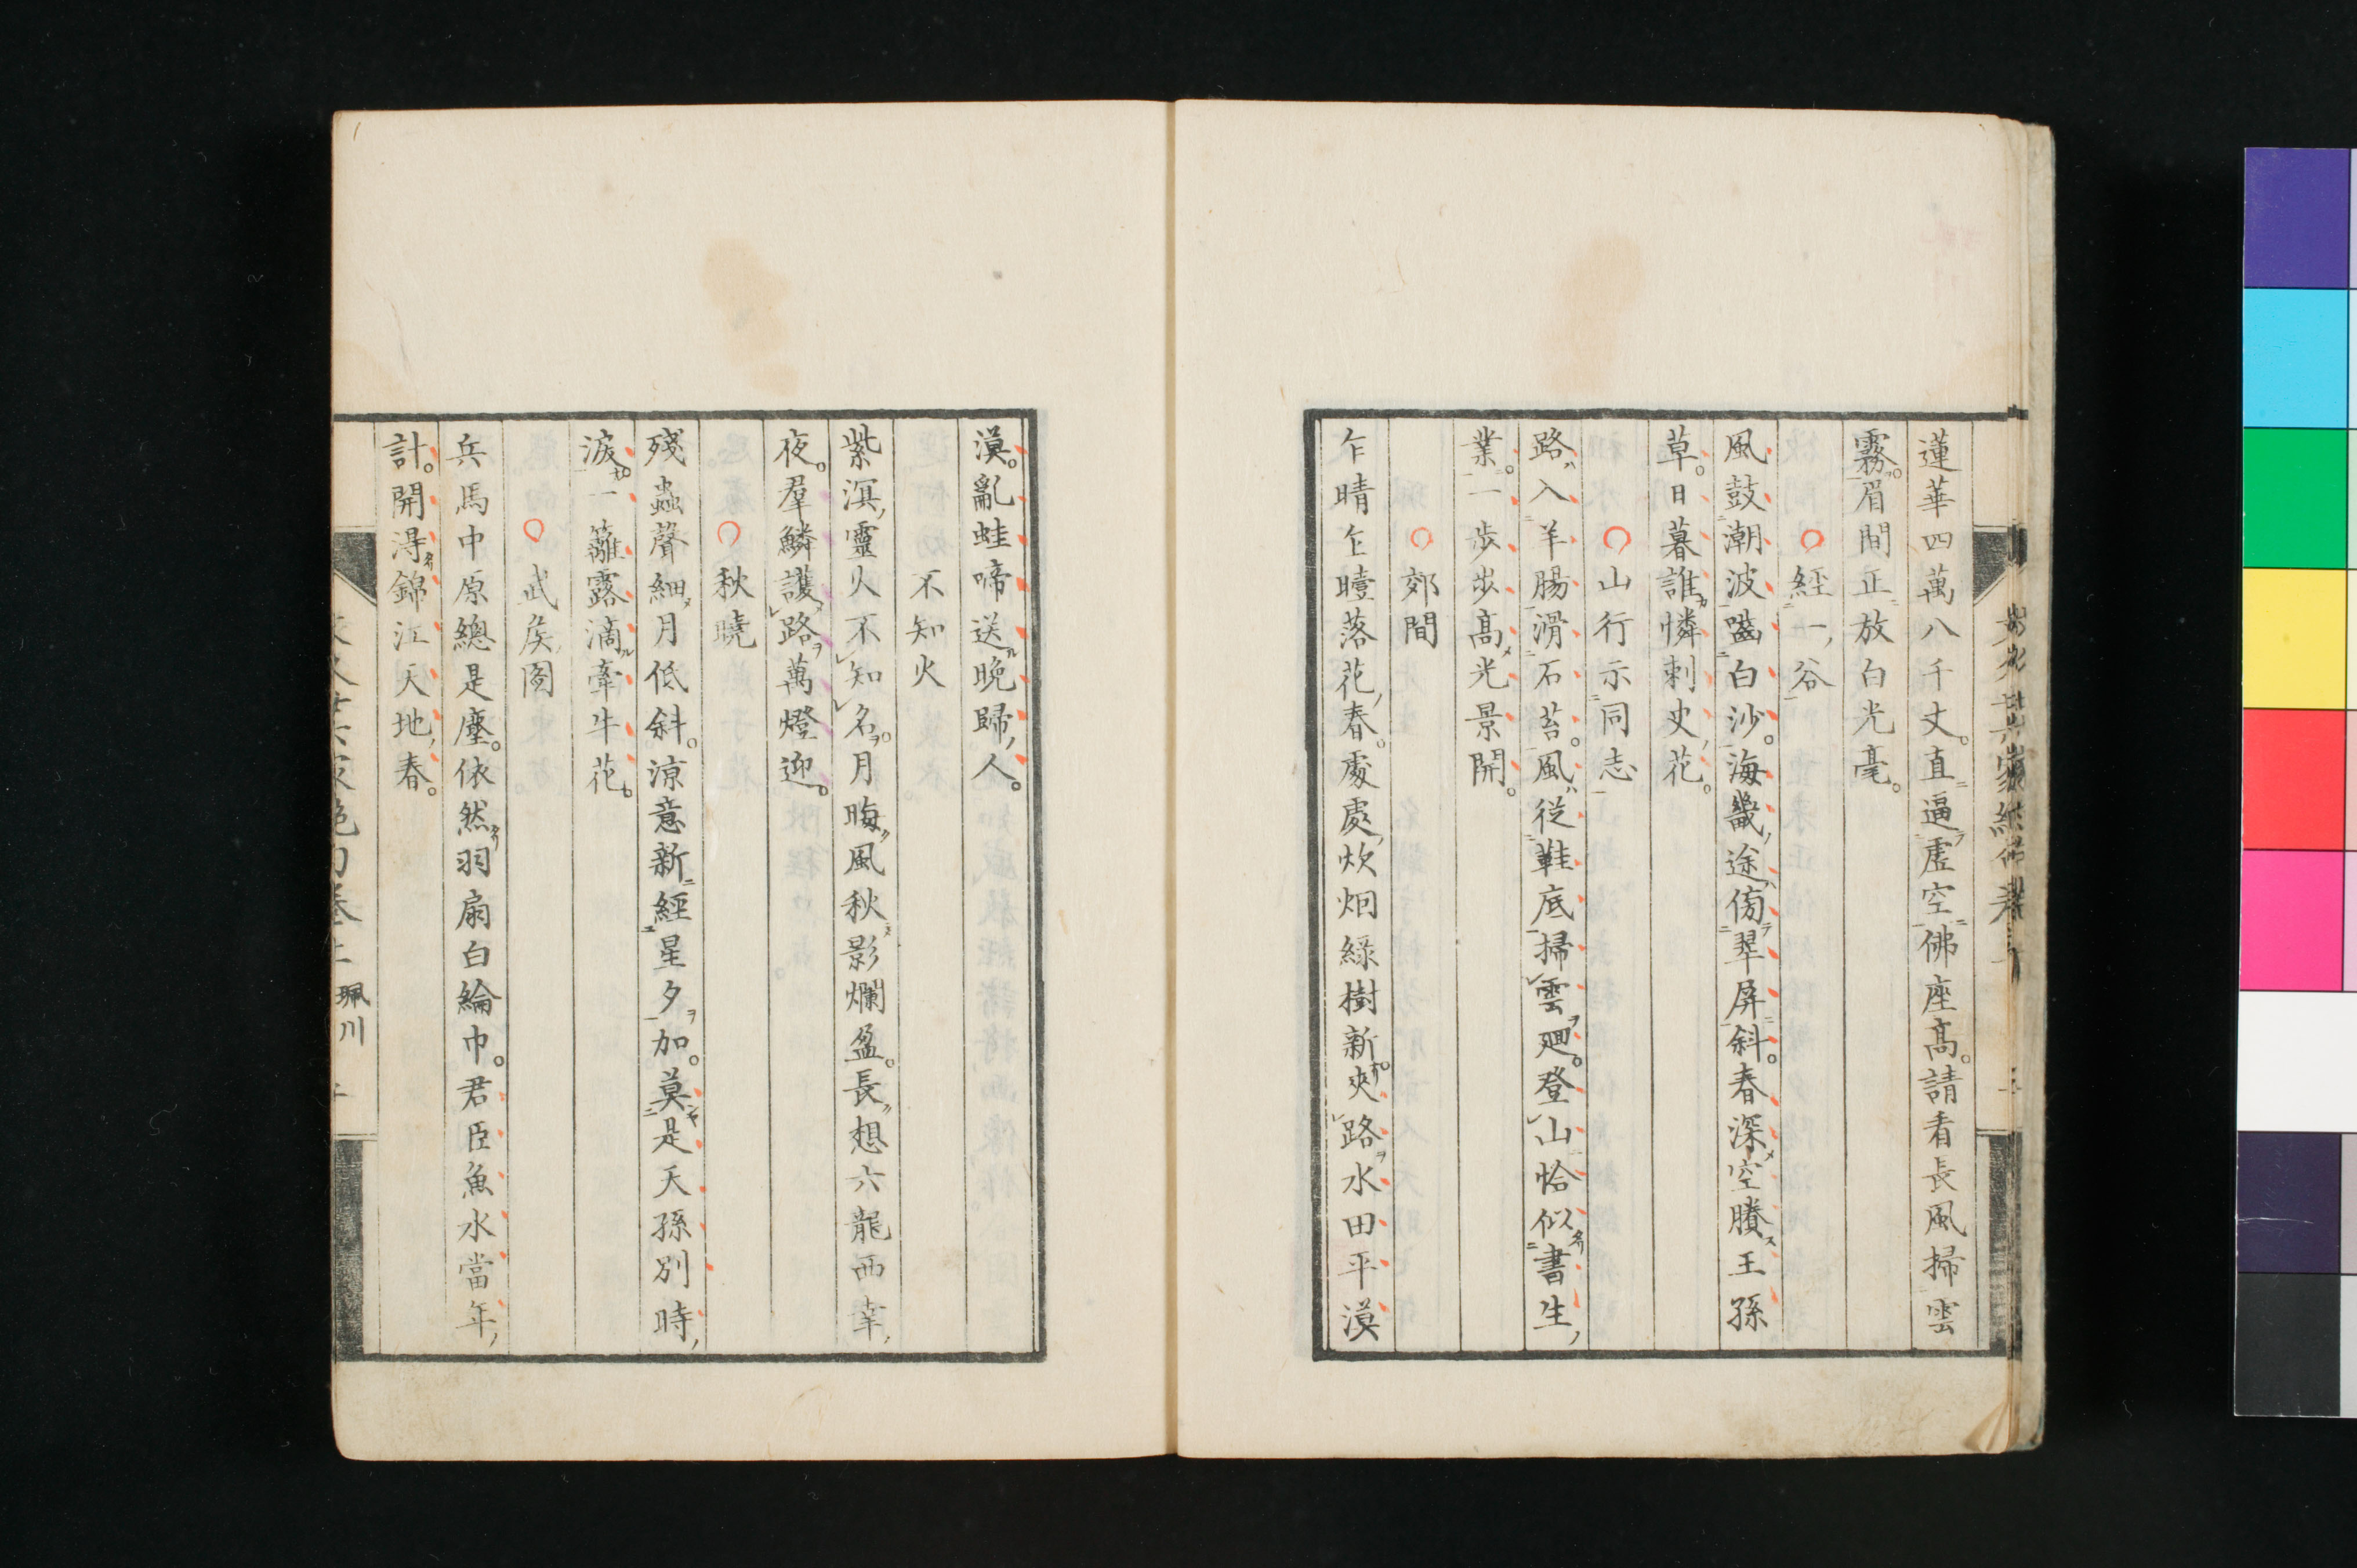 蓮華四萬八千丈。直逼虛空佛座高。請看長風掃雲
霧。眉間正放白光毫。
經一谷
風鼓潮波囓白沙。海畿途傍翠屏斜。春深空賸王孫
草。日暮誰憐刺史花。
山行示同志
路入羊腸滑石苔。風從鞋底掃雲廻。登山恰似書生
業。一步步高光景開。
郊間
乍晴乍曀落花春。處處炊烟綠樹新。夾路水田平漠
漠。亂蛙啼送晚歸人。
不知火
紫溟靈火不知名。月晦風秋影爛盈。長想六龍西幸
夜。羣鱗護路萬燈迎。
秋曉
殘蟲聲細月低斜。涼意新經星夕加。莫是天孫別時
淚。一籬露滴牽牛花。
武矦圖
兵馬中原總是塵。依然羽扇白綸巾。君臣魚水當年
計。開得錦江天地春。
珮川